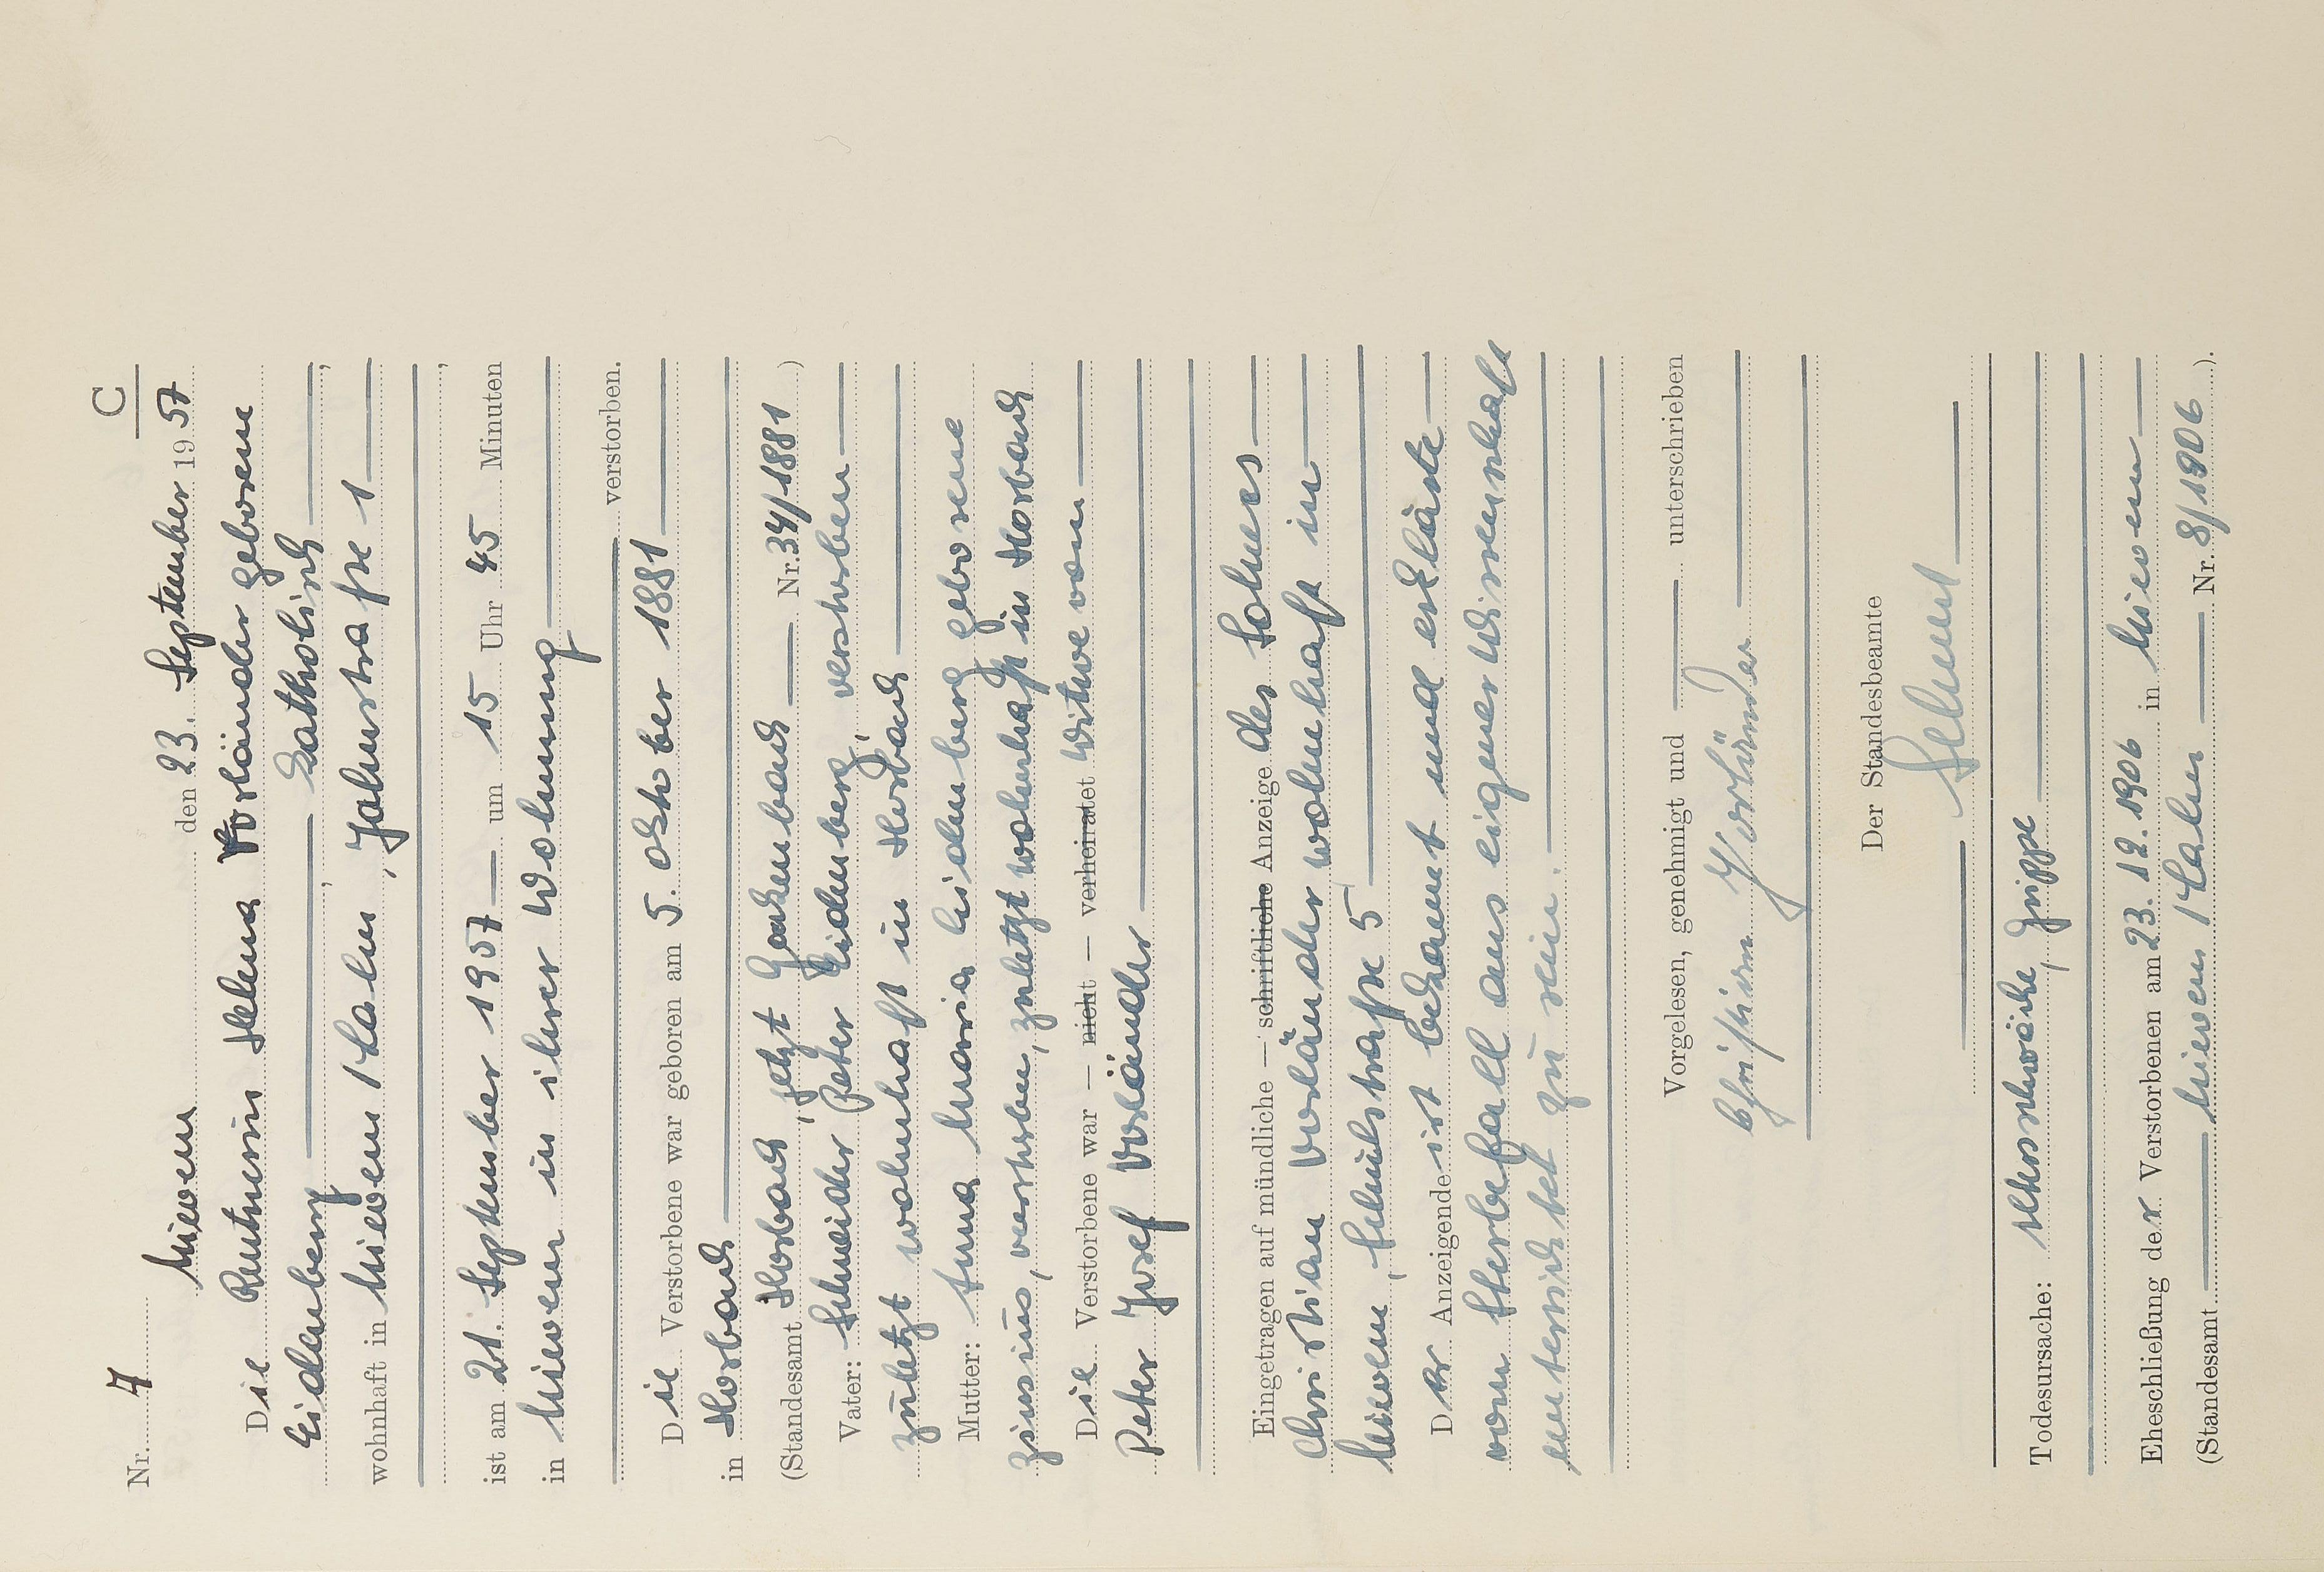 C
Nr. 7
Nievern den 23. September 1957
Die Rentnerin Helena Vorländer geborene
Eidenberg — katholisch
wohnhaft in Nievern / Lahn, Jahnstraße 1
ist am 21. September 1957 um 15 Uhr 45 Minuten
in Nievern in ihrer Wohnung
verstorben.
Die Verstorbene war geboren am 5. Oktober 1881
in Horbach
(Standesamt Horbach, jetzt Gackenbach Nr. 34/1881)
Vater: Schneider Peter Eidenberg, verstorben
zuletzt wohnhaft in Horbach
Mutter: Anna Maria Eidenberg geborene
verstorben, zuletzt wohnhaft in Horbach
Die Verstorbene war — nicht — verheiratet Witwe vom
Peter Josef Vorländer
Eingetragen auf mündliche — schriftliche Anzeige des Sohnes
Christian Vorländer wohnhaft in
Nievern, Schulstraße 5
Der Anzeigende ist bekannt und erklärte
vom Sterbefall aus eigener Wissenschaft
unterrichtet zu sein.
Vorgelesen, genehmigt und unterschrieben
Christian Vorländer
Der Standesbeamte
Todesursache: Altersschwäche, Grippe
Eheschließung der Verstorbenen am 23.12.1906 in Nievern
(Standesamt Nievern / Lahn Nr. 8/1906).